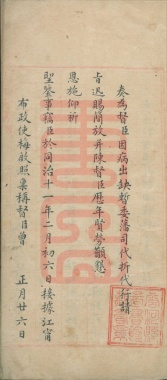 奏為督臣因病出缺暫委藩司代折代行請
旨迅賜簡放并陳督臣歷年賢勞籲懇
恩施仰祈
聖鑒事竊臣於同治十一年二月初六日接據江甯
布政使梅啟照稟稱督臣曾　正月廿六日